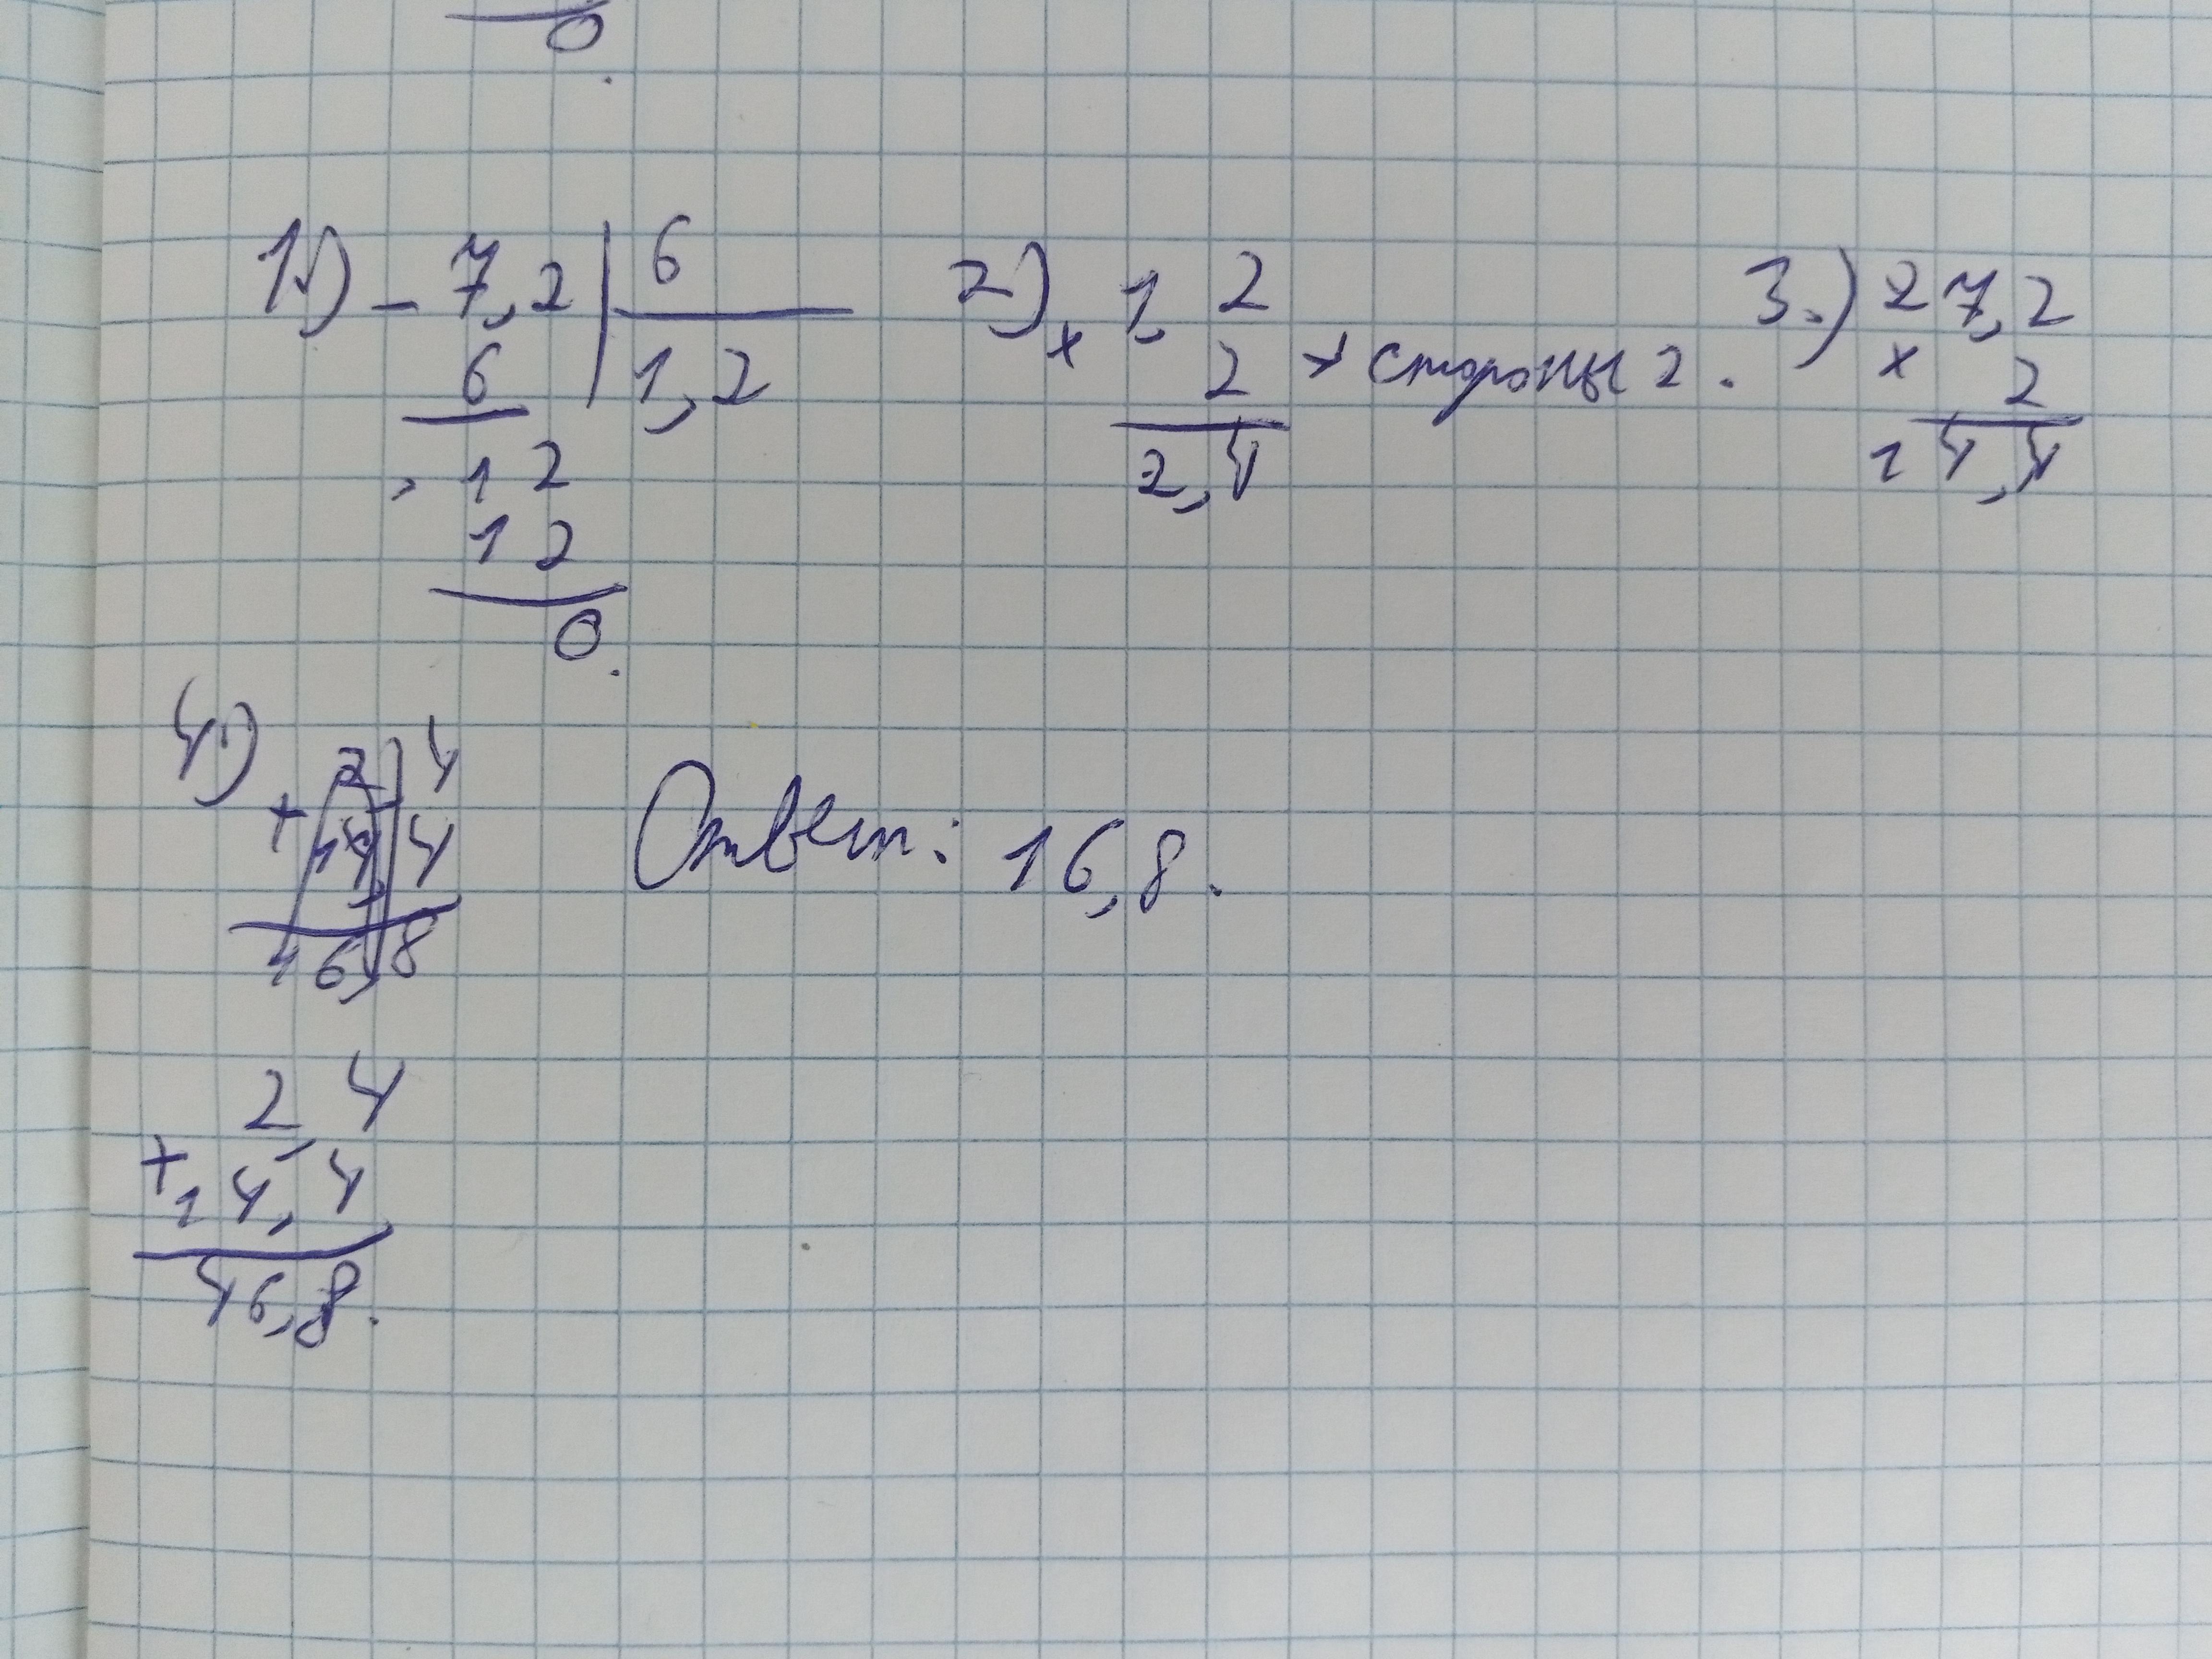 0.
1.) - 7,2 | 6
6 | 1,2
- 12
12
0.
2.) × 1,2
2 → стороны 2.
2,4
3.) 2 7,2
× 2
14,4
4.) 2,4
+ 14,4
16,8
Ответ: 16,8.
2,4
+ 14,4
16,8.